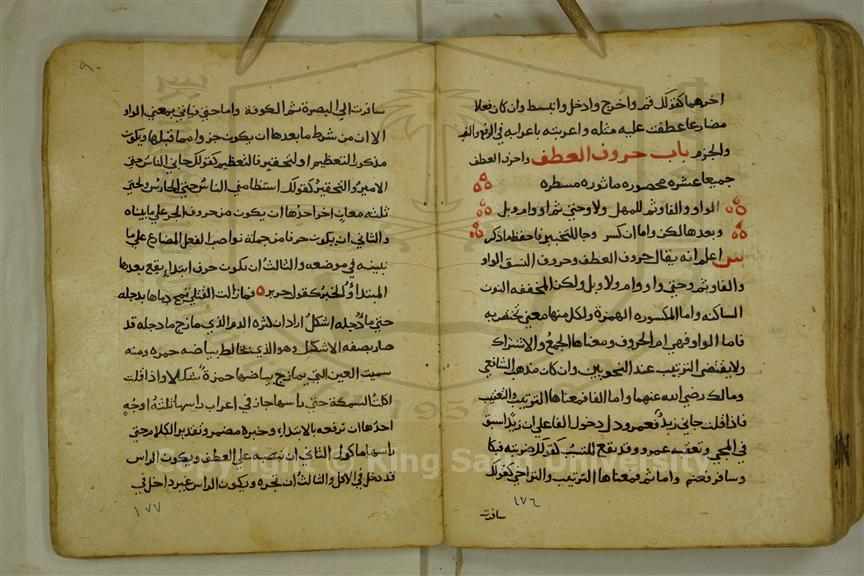 اخرهما كقولك قم واخرج وادخل وانبسط وان كان فعلا
مضارعا عطفت عليه مثله واعربته باعرابه في الرفع والنصب
والجزم باب حروف العطف واحرف العطف
جميعا عشره محصوره ماثوره مسطره
الواو والفا وثم للمهل ولا وحتى ثم او وام وبل
وبعدها لكن واما ان كسر وجا للتخيير فاحفظ ما ذكر
اعلم انه يقال حروف العطف وحروف النسق الواو
والفا وثم وحتى واو وام ولا وبل ولكن المخففه النون
الساكنه واما المكسوره الهمزة ولكل منها معنى يختص به
فاما الواو فهي ام الحروف ومعناها الجمع والاشتراك
ولا يقتضى الترتيب عند النحويين وان كان مذهب الشافعي
ومالك رضي الله عنهما واما الفا فمعناها الترتيب والتعقيب
فاذا قلت جاني زيد فعمرو دل دخول الفا على ان زيدا سبق
في المجي وتعقبه عمرو وقد يقع للتسبب كقولك ضربته فبكا
وسافر فغنم واما ثم فمعناها الترتيب والتراخي كقولك
١٧٦
سافرت
٩٠
سافرت الى البصرة ثم الكوفة واما حتى فياتي بمعنى الواو
الا ان من شرط ما بعدها ان يكون جزوا مما قبلها ويكون
مذكورا لتعظيم او لتحقير فالتعظيم كقولك جاني الناس حتى
الامير والتحقير كقولك استظامني الناس حتى الحارس ولحتى
ثلثه معان اخر احدها ان يكون من حروف الجر على ما بيناه
والثاني ان يكون حرفا من جملة نواصب الفعل المضارع على ما
نبينه في موضعه والثالث ان تكون حرف ابتداء يقع بعدها
المبتدا والخبر كقول جرير ه فما زالت القتلى تمج دماها بدجله
حتى ما دجله اشكل اراد ان لكثرة الدم الذي مازج ما دجله قد
صار بصفه الاشكل وهو الذي تخالط بياضه حمره ومنه
سميت العين التي يمازج بياضها حمزة شكلا واذا قلت
اكلت السمكة حتى راسها جاز في اعراب راسها ثلثة اوجه
احدها ان ترفعه بالابتداء وخبره مضمر وتقدير الكلام حتى
راسها ماكول الثاني ان تنصبه على العطف ويكون الراس
قد دخل في الاكل والثالث ان تجره ويكون الراس غير داخل في
١٧٧